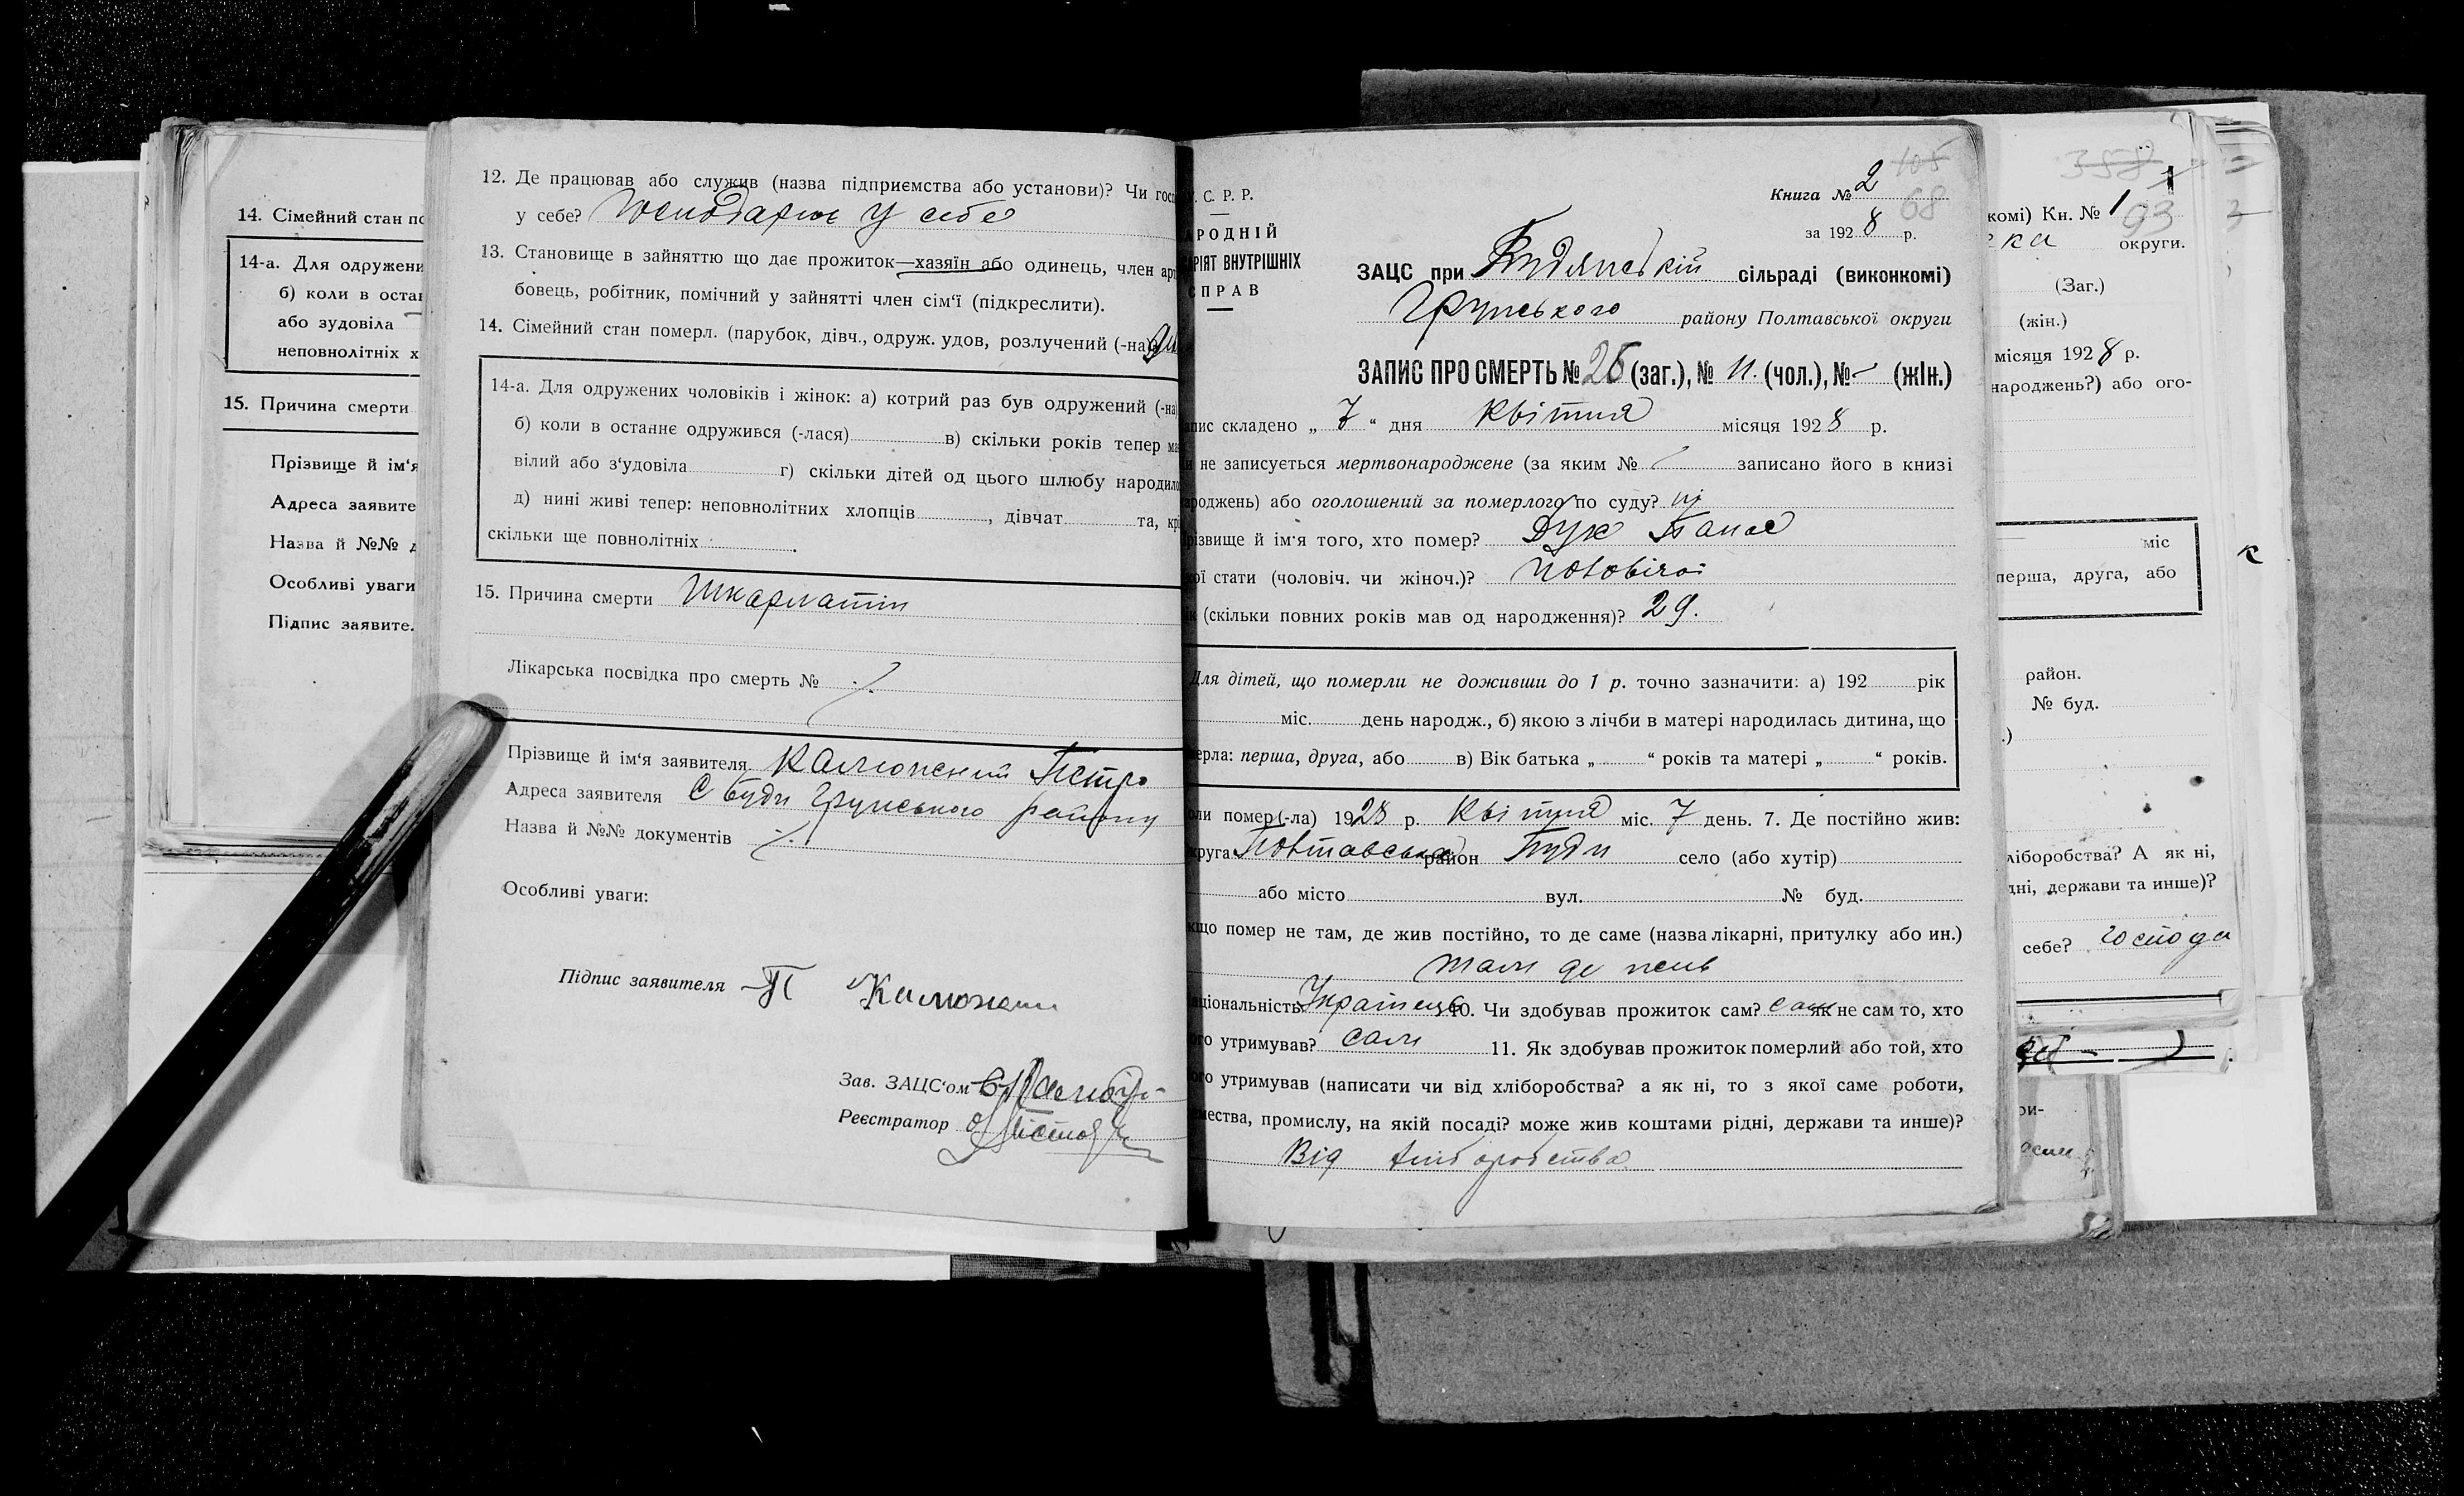 14. Сімейний стан по
14-а. Для одружени
б) коли в остан
або зудовіла
неповнолітніх х
15. Причина смерти
Прізвище й ім‘я
Адреса заявите
Назва й №№ д
Особливі уваги
Підпис заявите.
12. Де працював або служив (назва підприємства або установи)? Чи госп
у себе? Господарює у себе
13. Становище в зайняттю що дає прожиток—хазяїн або одинець, член арт
бовець, робітник, помічний у зайнятті член сім‘ї (підкреслити).
14. Сімейний стан померл. (парубок, дівч., одруж. удов, розлучений (-на)
14-а. Для одружених чоловіків і жінок: а) котрий раз був одружений (-на
б) коли в останнє одружився (-лася) в) скільки років тепер ма
вілий або з‘удовіла г) скільки дітей од цього шлюбу народило
д) нині живі тепер: неповнолітних хлопців , дівчат та, кр
скільки ще повнолітніх .
15. Причина смерти Шкарлатін
Лікарська посвідка про смерть №
Прізвище й ім‘я заявителя Петро
Адреса заявителя С Буди Грунського району
Назва й №№ документів
Особливі уваги:
Підпис заявителя П
Зав. ЗАЦС‘ом
Реєстратор
С. Р. Р.
АРОДНІЙ
АРІЯТ ВНУТРІШНІХ
СПРАВ
Книга № 2
105
68
за 1928 р.
ЗАЦС при Будянській сільраді (виконкомі)
Грунського району Полтавської округи
ЗАПИС ПРО СМЕРТЬ № 25 (заг.), № 11. (чол.), № – (жін.)
апис складено „ 7 “ дня квітня місяця 1928 р.
и не записується мертвонароджене (за яким № записано його в книзі
ароджень) або оголошений за померлого по суду? ні
різвище й ім‘я того, хто помер? Дук Панас
кої стати (чоловіч. чи жіноч.)? Чоловічої
ік (скільки повних років мав од народження)? 29.
Для дітей, що померли не доживши до 1 р. точно зазначити: а) 192 рік
міс. день народж., б) якою з лічби в матері народилась дитина, що
мерла: перша, друга, або в) Вік батька „ “ років та матері „ “ років.
оли помер (-ла) 1928 р. Квітня міс. 7 день. 7. Де постійно жив:
круга Полтавська район Буди село (або хутір)
або місто вул. № буд.
кщо помер не там, де жив постійно, то де саме (назва лікарні, притулку або ин.)
там де жив
аціональність Українець 10. Чи здобував прожиток сам? сам як не сам то, хто
ого утримував? сам 11. Як здобував прожиток померлий або той, хто
ого утримував (написати чи від хліборобства? а як ні, то з якої саме роботи,
мества, промислу, на якій посаді? може жив коштами рідні, держави та инше)?
Від хліборобства
358
комі) Кн. № 1
93
ка округи.
(Заг.)
(жін.)
місяця 1928 р.
народжень?) або ого-
міс
перша, друга, або
район.
№ буд.
.)
ліборобства? А як ні,
дні, держави та инше)?
себе? господа
ри-